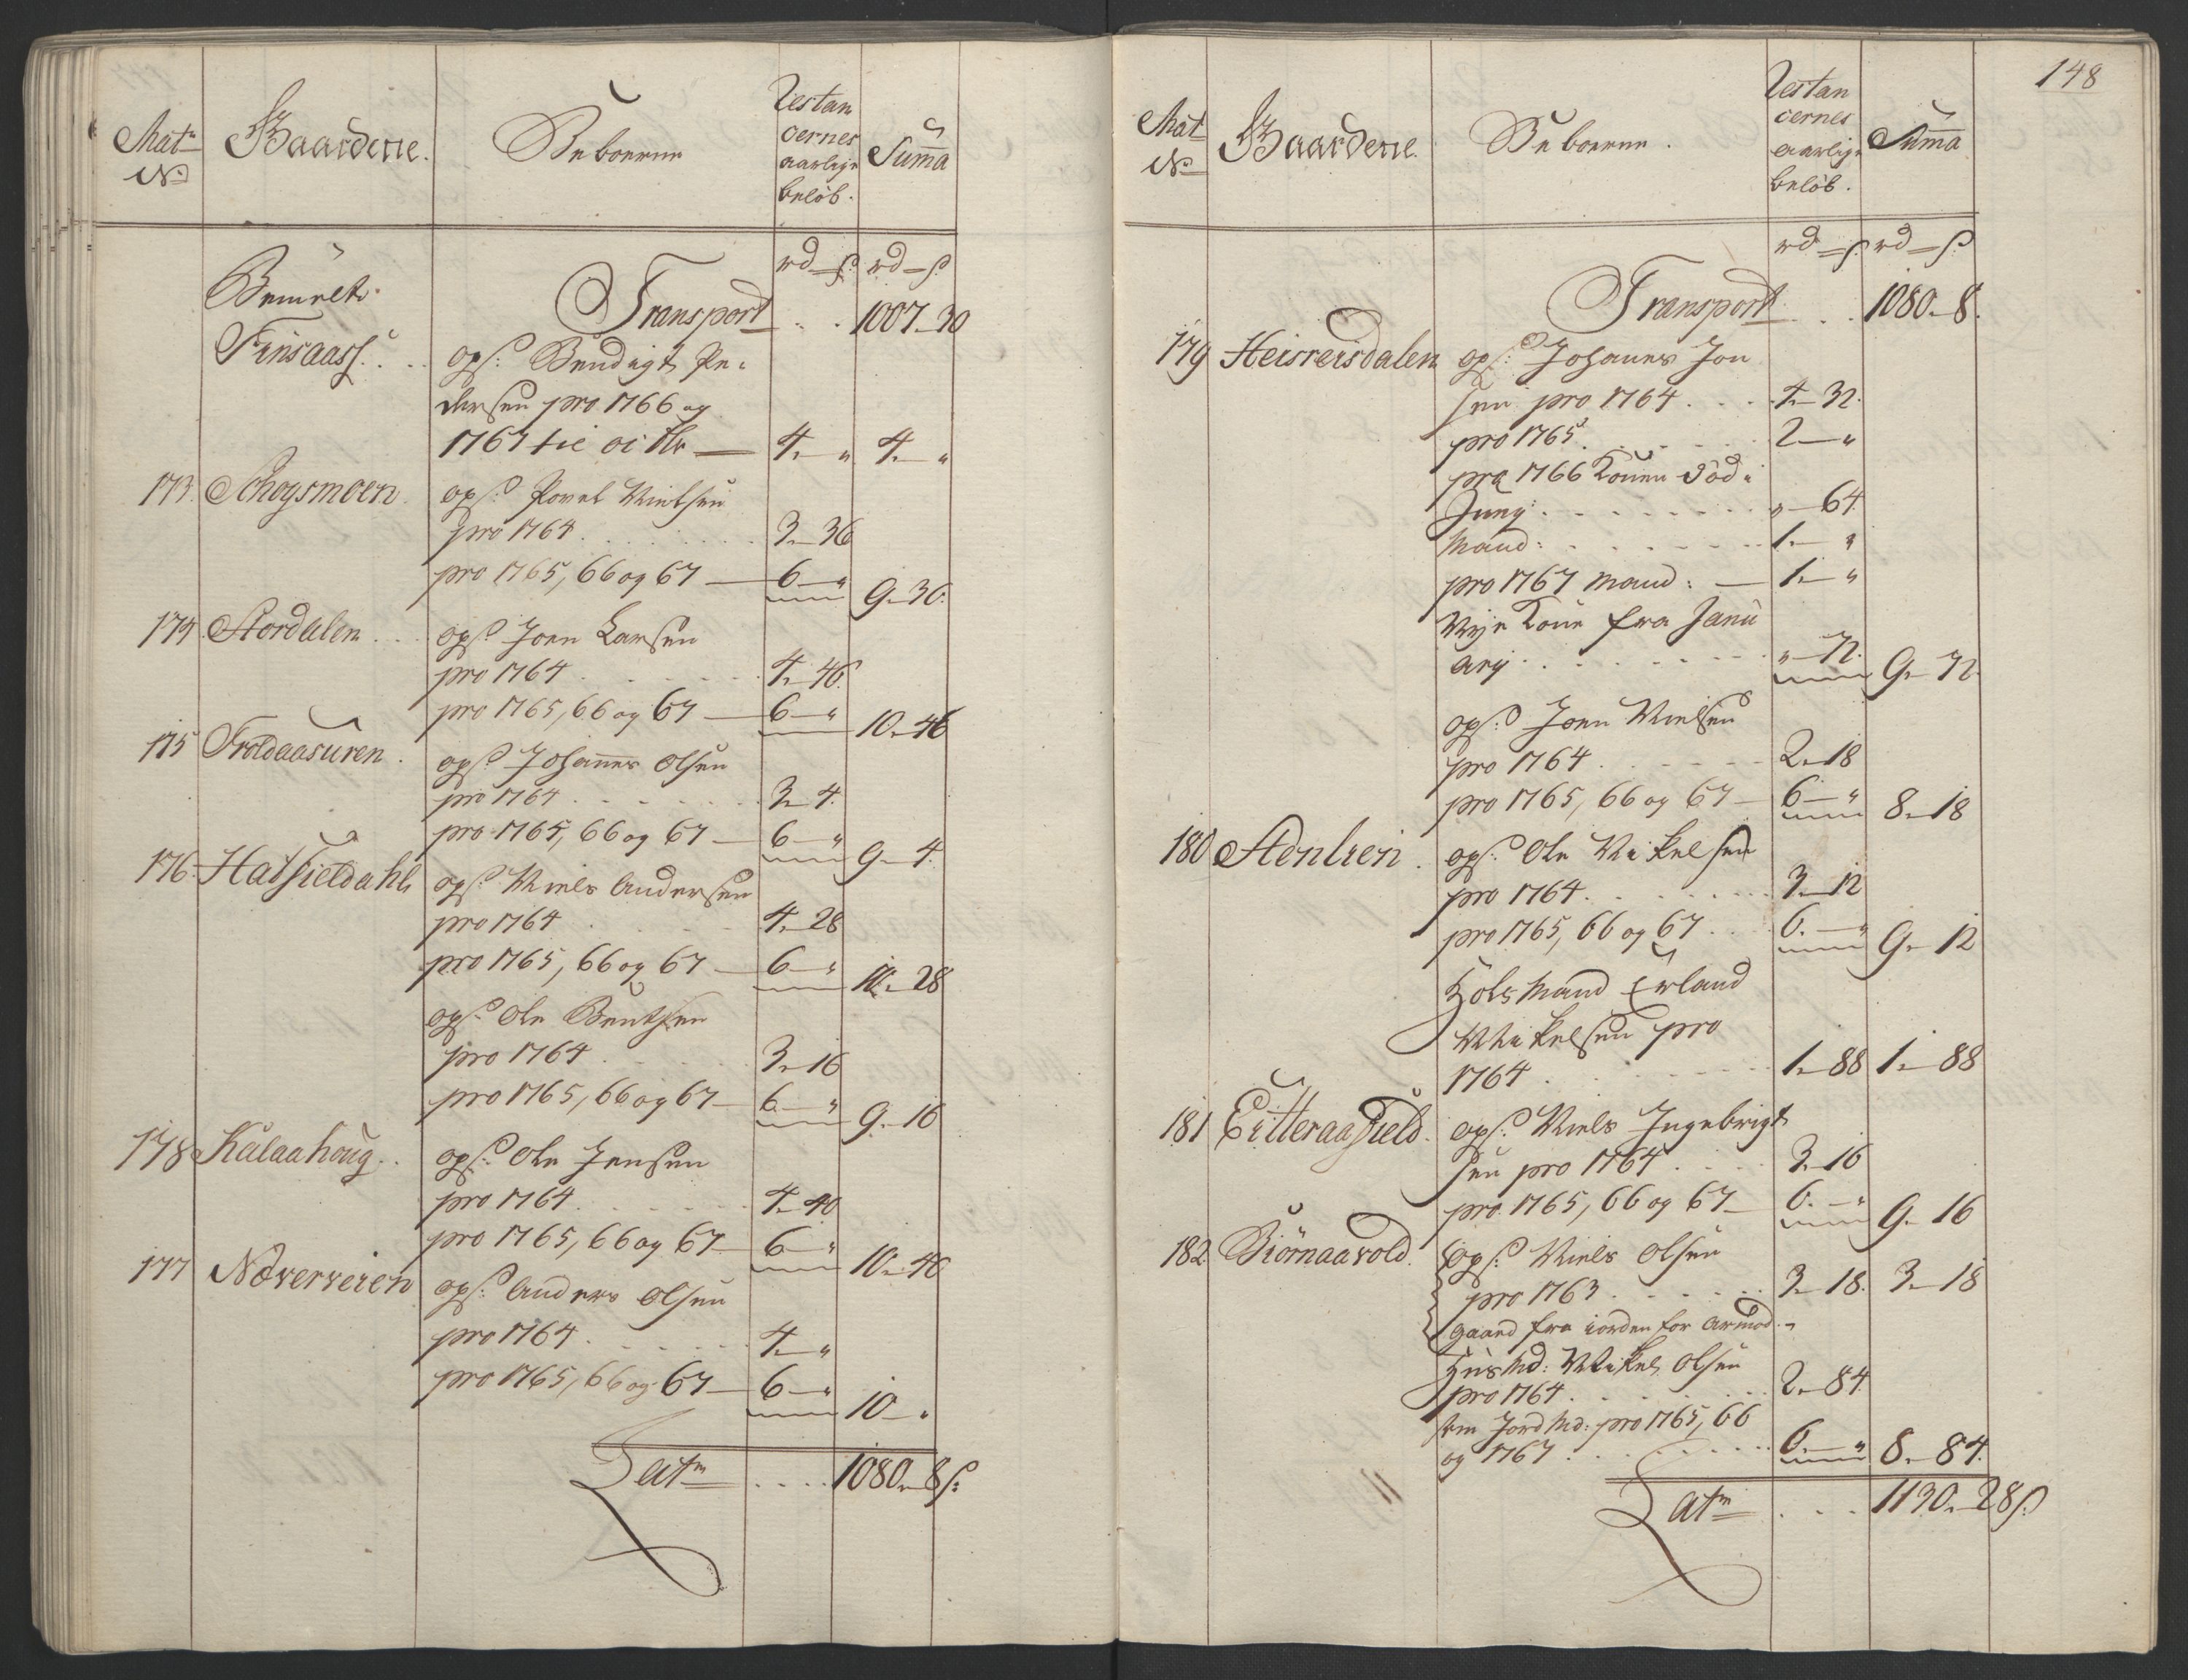 Mat
No
Gaardene.
Beboerne
Restan
cernes
aarlige
beløb.
Summa
rd – s. rd – s
Bemelte
Finsaass. . .
Transport . . 1007 – 30
ops: Bendigt Pe-
dersen pro 1766 og
1767 — 4. " 4. "
173. Schoysmoen. ops: Povel Nielsen
pro 1764 . . . . 3 – 36
pro 1765, 66 og 67 — 6 – " 9 – 36.
174 Stordalen . . ops: Joen Larsen
pro 1764 . . . . 4 – 46.
pro 1765, 66 og 67 — 6 – " 10 – 46
175 Troldaasuren . ops: Johannes Olsen
pro 1764 . . . . 3 – 4.
pro 1765, 66 og 67 — 6 – " 9 – 4.
176 Hatfieldahl ops: Niels Andersen
pro 1764 . . . . 4 – 28
pro 1765, 66 og 67 — 6 – " 10 – 28
ops: Ole Bentsen
pro 1764 . . . . 3 – 16
pro 1765, 66 og 67 — 6 – " 9 – 16
178 Kalaahoug . . ops: Ole Jensen
pro 1764 . . . . 4 – 40
pro 1765, 66 og 67 — 6 – " 10 – 40
177 Næververen ops: Anders Olsen
pro 1764 . . . . 4 – "
pro 1765, 66 og 67 — 6 – " 10 – "
Latm . . . . 1080 – 8 s:
148
Mat
No
Gaardene.
Beboerne.
Restan
cernes
aarlige
beløb.
Summa
rd – s. rd – s
Transport . . 1080 – 8.
179 Heisreisdalen ops: Johanes Jon
sen pro 1764 . . . 4 – 32.
pro 1765 . . . . 2 – "
pro 1766 Konen død i
Junij . . . . " – 64
Mand: . . . . 1 – "
pro 1767 Mand: — 1 – "
Nye Kone fra Janu
arij . . . . " – 72. 9 – 72.
ops: Joen Nielsen
pro 1764 . . . . 2 – 18
pro 1765, 66 og 67 — 6 – " 8 – 18
180 Stenlien . ops: Ole Mikelsen
pro 1764 . . . . 3 – 12
pro 1765, 66 og 67 . . 6. – " 9 – 12
Erland
Mikelsen pro
1764 . . . . 1 – 88 1 – 88
181 Eitteraafield. ops: Niels Ingebrigt
sen pro 1764 . . . 3 – 16
pro 1765, 66 og 67 — 6. – " 9 – 16
182 Biørnaavold. ops: Niels Olsen
pro 1763 . . . . 3 – 18. 3 – 18
gaaed fra iorden for armod.
Husmd: Mikel Olsen
pro 1764 . . . . 2 – 84.
som Jordmd: pro 1765, 66
og 1767 . . . . 6. – " 8 – 84.
Latm . . . 1130 – 28 s: